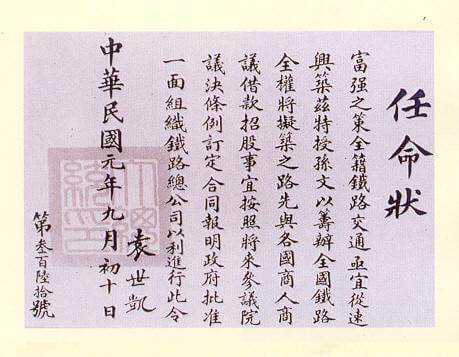 任命狀
富强之策全藉鐵路交通亟宜從速
興築茲特授孫文以籌辦全國鐵路
全權將擬築之路先與各國商人商
議借款招股事宜按照將來參議院
議決條例訂定合同報明政府批准
一面組織鐵路總公司以利進行此令
袁世凱
中華民國元年九月初十日
第叁百陸拾號